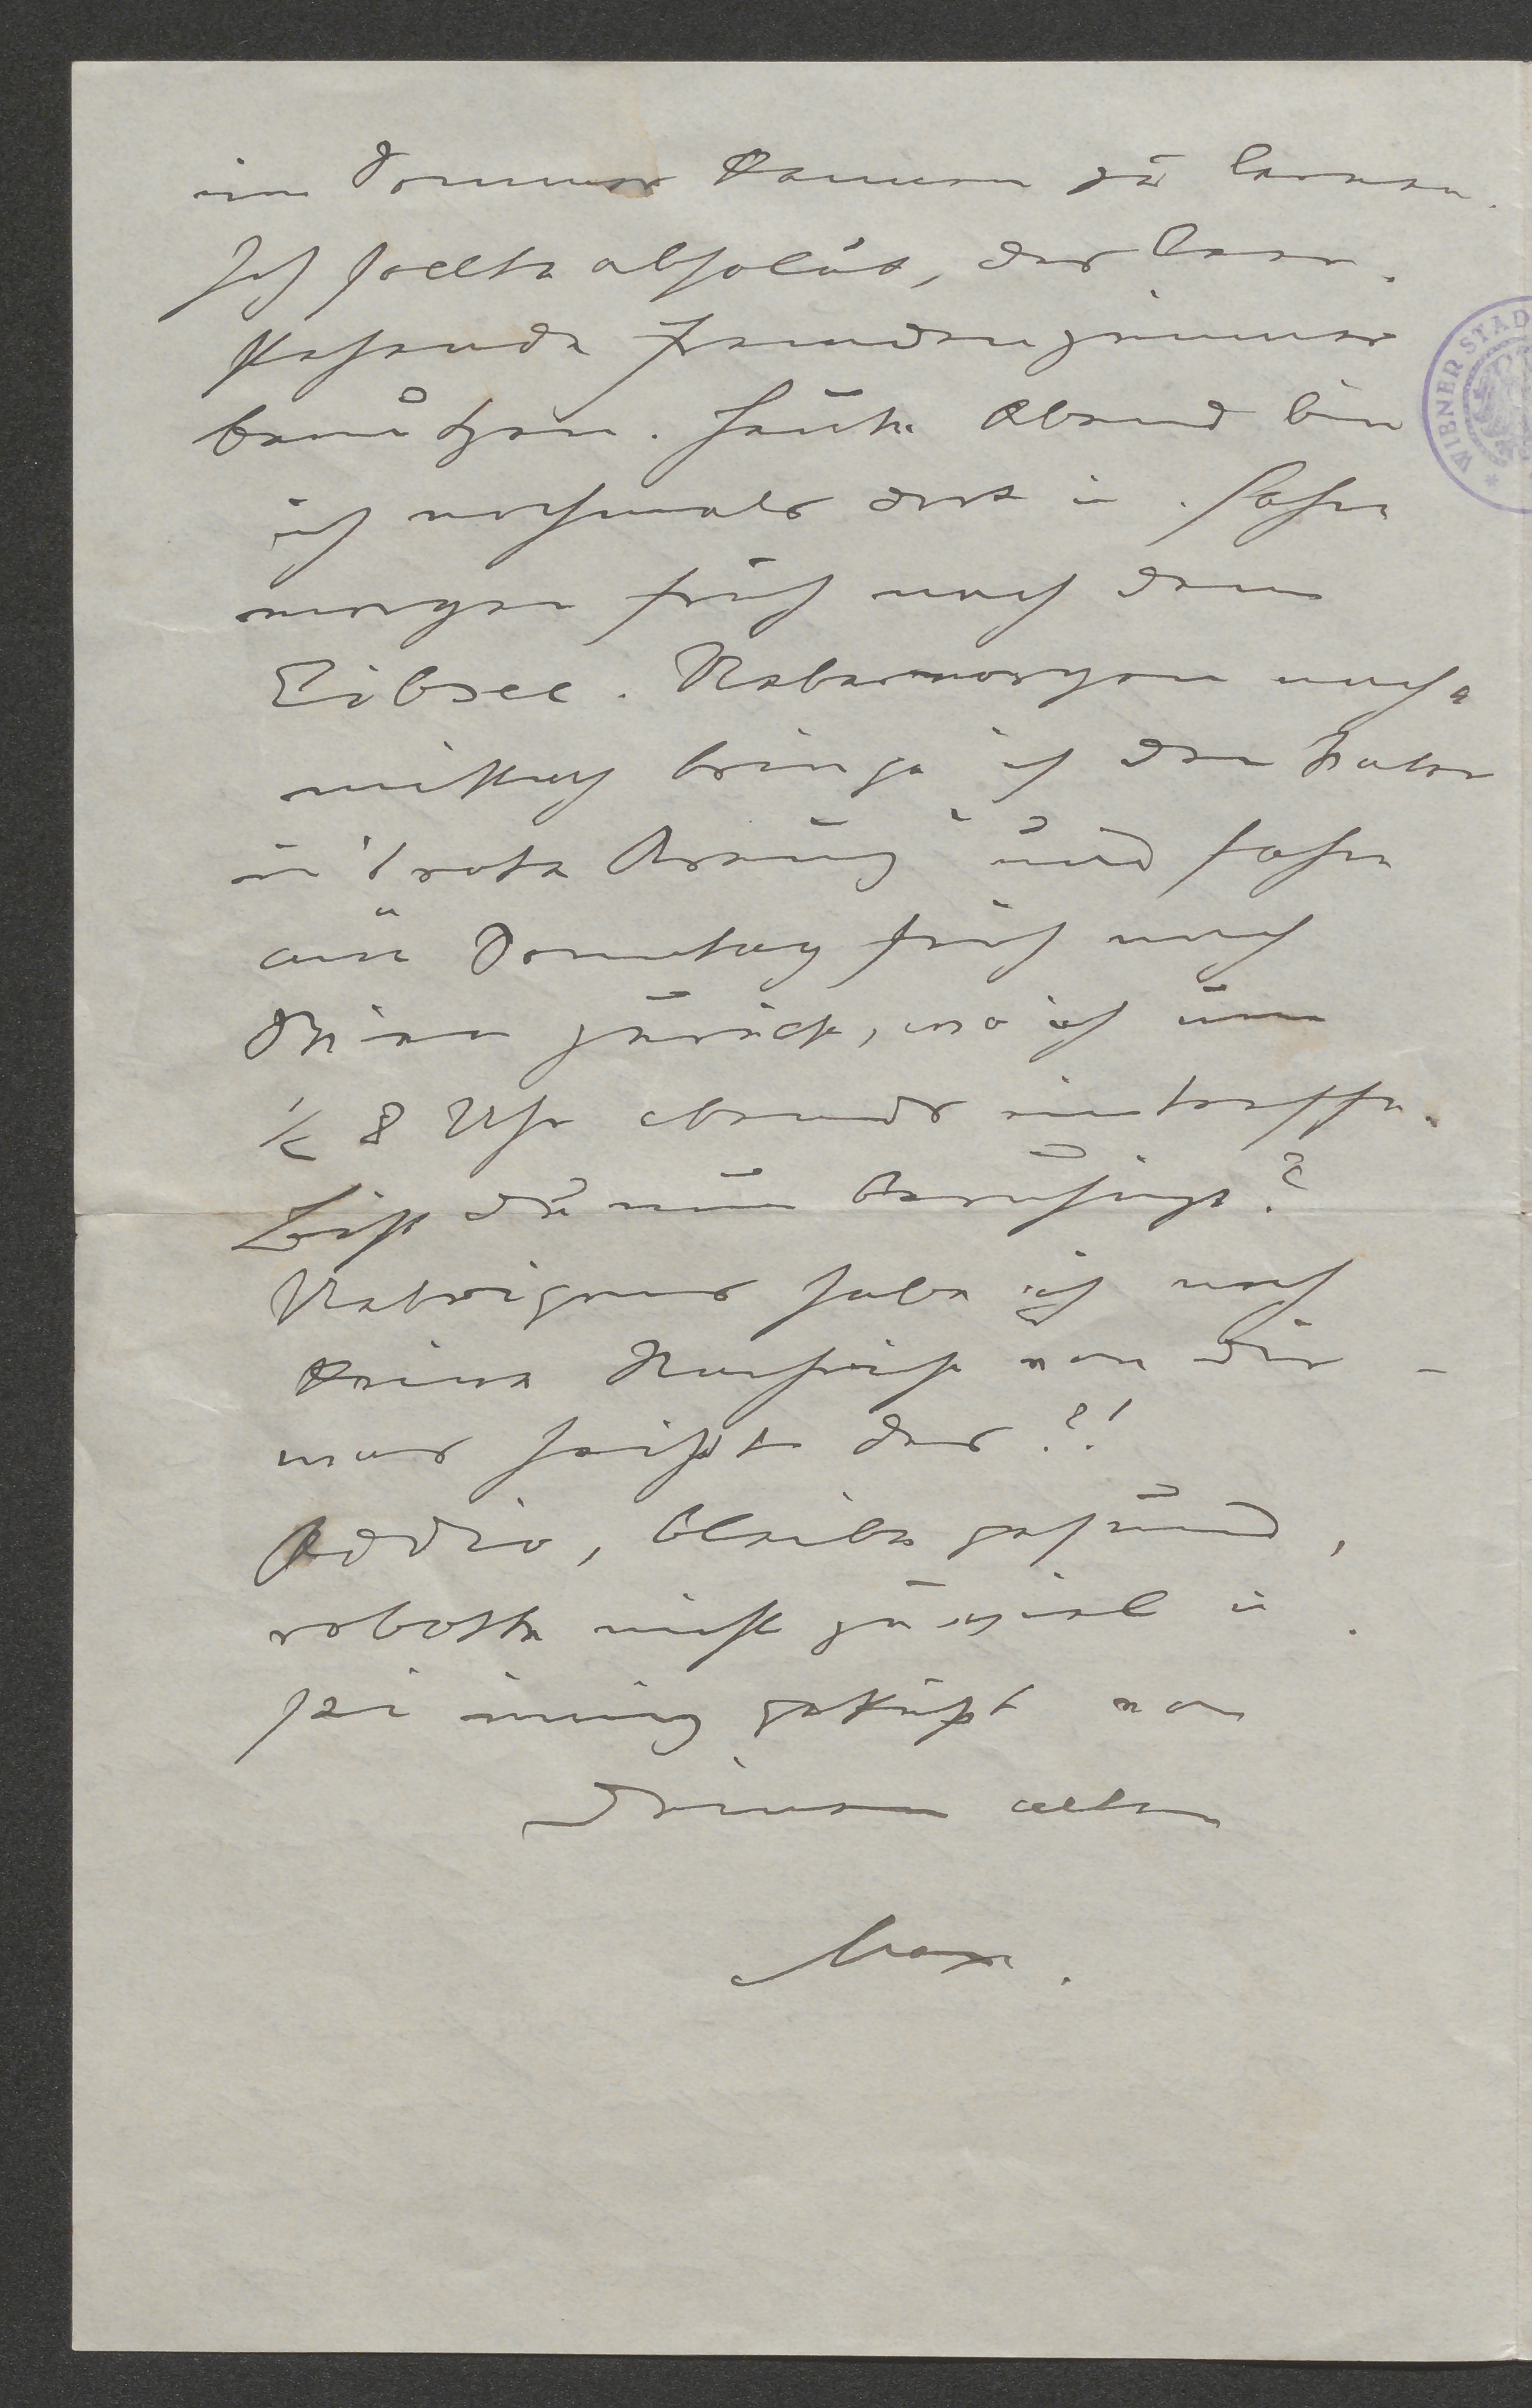 im Sommer kennen zu lernen.
Ich sollte absolut, das leer-
stehende Fremdenzimmer
benützen. Heute Abend bin
ich nochmals dort u. fahre
morgen früh nach dem
Eibsee. Uebermorgen nach-
mittag bringe ich den Vater
in's rote Kreuz und fahre
am Sonntag früh nach
Wien zurück, wo ich um
1/2 8 Uhr abends eintreffe.
Bist Du nun beruhigt?
Uebrigens habe ich noch
keine Nachricht von Dir –
was heißt das?!
Addio, bleibe gesund,
robotte nicht zu viel u.
sei innig geküßt von
Deinem alten
Max.
WIENER STAD